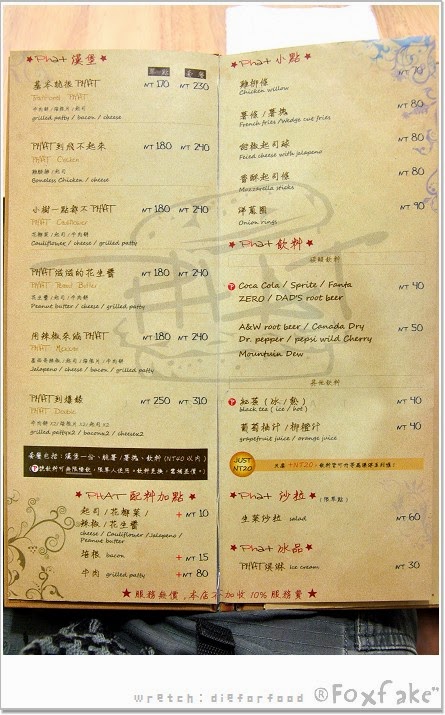 ★ Phat 漢堡 ★
單點 套餐
基本熱板 PHAT NT 170 NT 230
Traditional PHAT
牛肉餅 / 培根片 / 起司
grilled patty / bacon / cheese
PHAT到飛不起來 NT 180 NT 240
PHAT Chicken
雞腿排 / 起司
Boneless Chicken / cheese
小樹一點都不PHAT NT 180 NT 240
PHAT Cauliflower
花椰菜 / 起司 / 牛肉餅
Cauliflower / cheese / grilled patty
PHAT滋滋的花生醬 NT 180 NT 240
PHAT Peanut Butter
花生醬 / 起司 / 牛肉餅
Peanut butter / cheese / grilled patty
用辣椒來編PHAT NT 180 NT 240
PHAT Mexican
墨西哥辣椒 / 起司 / 培根片 / 牛肉餅
Jalapeno / cheese / bacon / grilled patty
PHAT到爆錶 NT 250 NT 310
PHAT Double
牛肉餅 X2 / 培根片X2 / 起司 X2
grilled pattyx2 / baconx2 / cheesex2
套餐包括：漢堡一份、脆薯 / 薯塊、飲料 (NT40 以內)
飲料可無限暢飲，限單人使用。飲料更換，需補差價。
★ PHAT 配料加點 ★
起司 / 花椰菜 / 辣椒 / 花生醬 + NT 10
cheese / Cauliflower / Jalapeno /
Peanut butter
培根 bacon + NT 15
牛肉 grilled patty + NT 80
★ Phat 小點 ★
雞柳條 NT 70
Chicken willow
薯條 / 薯塊 NT 80
French fries / Wedge cut fries
甜椒起司球 NT 80
Feied cheese with jalapeno
香酥起司條 NT 80
Mozzarella sticks
洋蔥圈 NT 90
Onion rings
★ Phat 飲料 ★
碳酸飲料
Coca Cola / Sprite / Fanta NT 40
ZERO / DAD'S root beer
A&W root beer / Canada Dry NT 50
Dr. pepper / pepsi wild Cherry
Mountain Dew
其他飲料
紅茶 ( 冰 / 熱 ) NT 40
black tea ( ice / hot )
葡萄柚汁 / 柳橙汁 NT 40
grapefruit juice / orange juice
JUST NT20
★ Phat 沙拉 ★ (限單點)
生菜沙拉 salad NT 60
★ Phat 冰品 ★
PHAT淇淋 ice cream NT 30
★ 服務無價，本店不加收 10% 服務費 ★
wretch: dieforfood ®Foxfake™